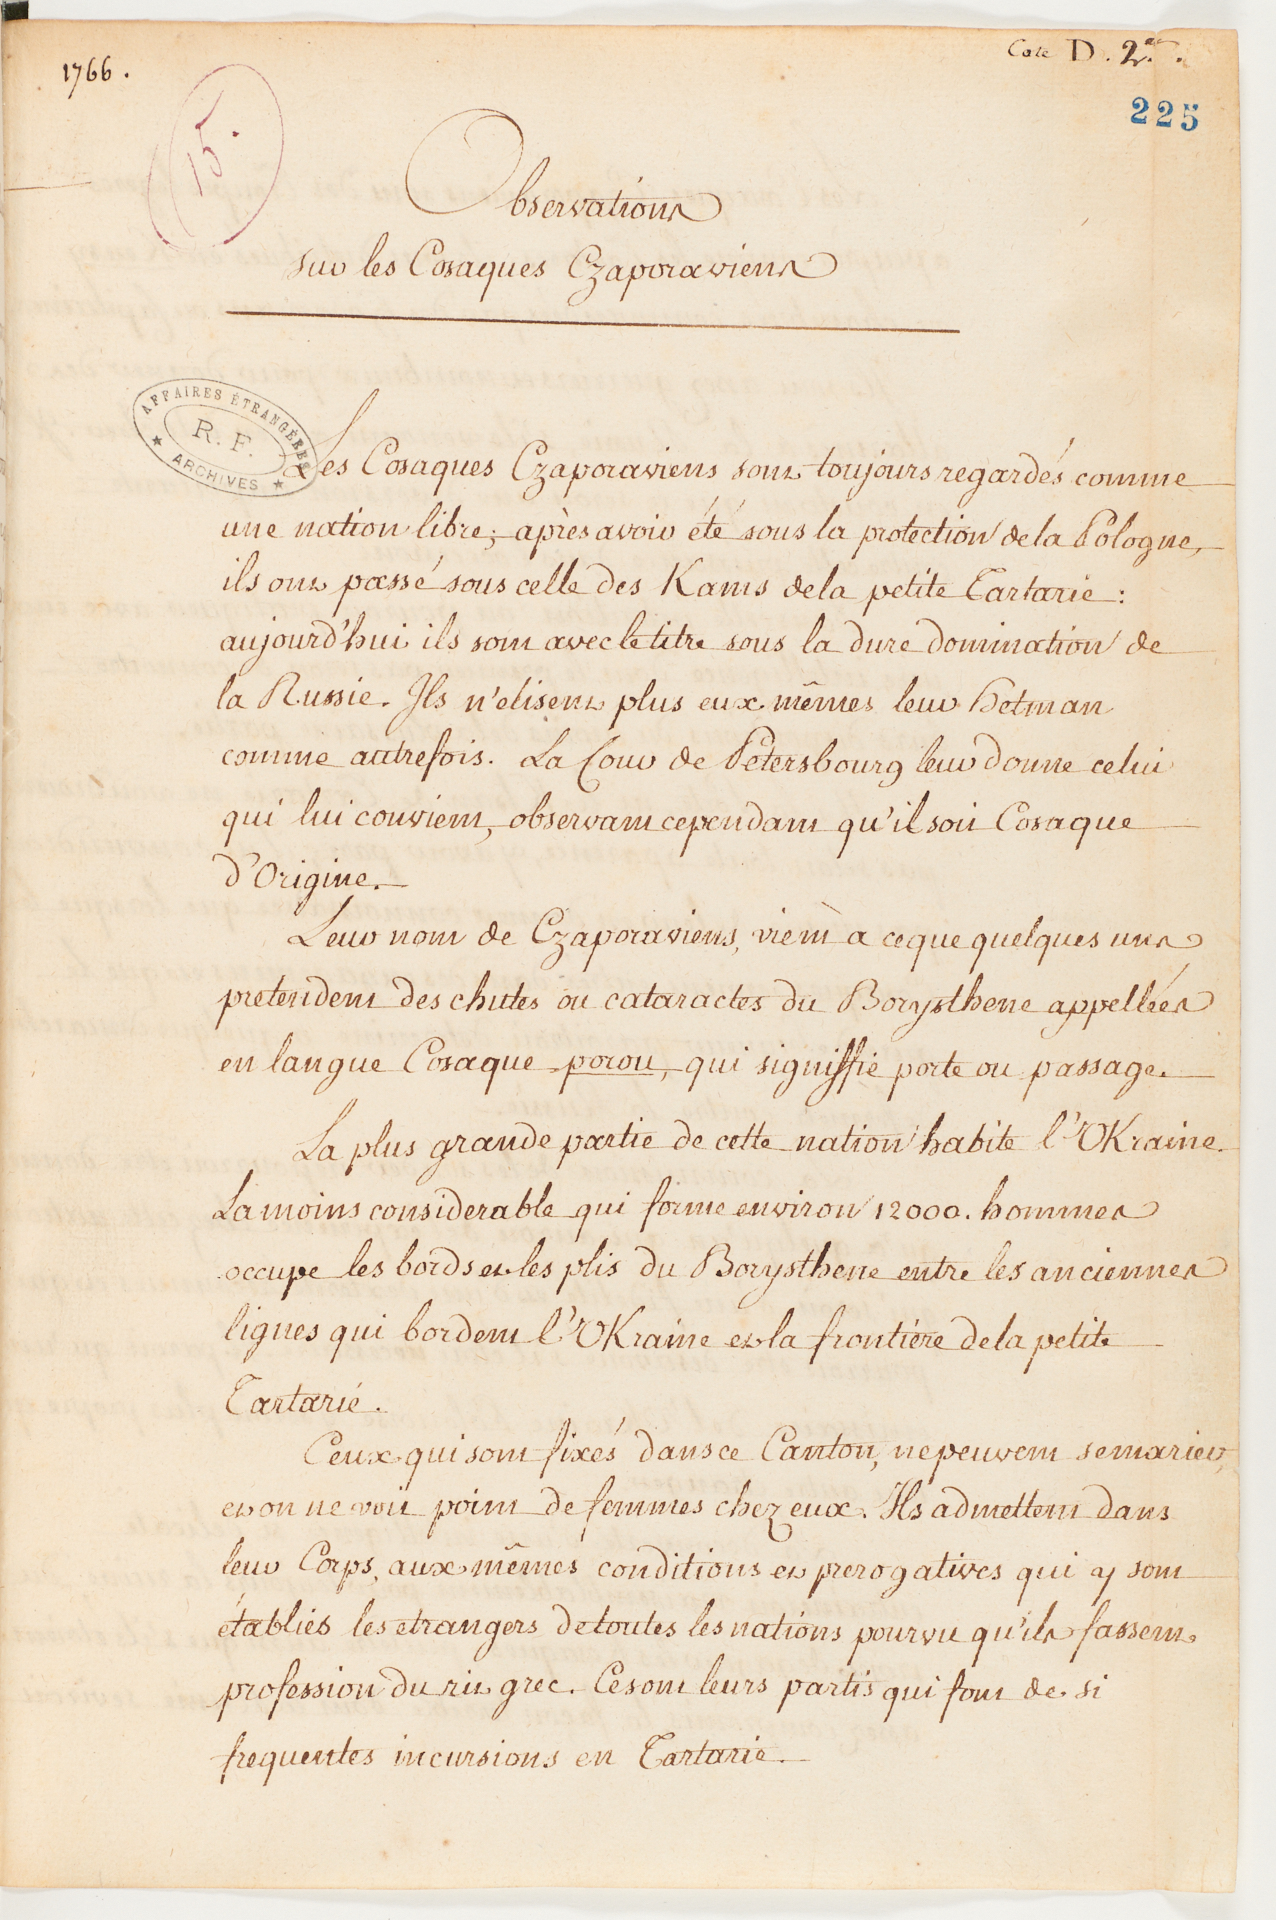 1766.
Cote D. 2.er.
225
15.
Observations
sur les Cosaques Czaporaviens
AFFAIRES ÉTRANGÈRES
R. F.
★ ARCHIVES ★
Les Cosaques Czaporaviens sont toujours regardés comme
une nation libre; après avoir été sous la protection de la Pologne,
ils ont passé sous celle des Kams de la petite Tartarie:
aujourd'hui ils sont avec le titre sous la dure domination de
la Russie. Ils n'elisent plus eux mêmes leur Hetman
comme autrefois. La Cour de Petersbourg leur donne celui
qui lui convient, observant cependant qu'il soit Cosaque
d'Origine.
Leur nom de Czaporaviens, vient à ce que quelques uns
pretendent des chutes ou cataractes du Borysthene appellées
en langue Cosaque porou, qui signiffie porte ou passage.
La plus grande partie de cette nation habite l'Ukraine.
La moins considerable qui forme environ 12000. hommes
occupe les bords et les plis du Borysthene entre les anciennes
lignes qui bordent l'Ukraine et la frontière de la petite
Tartarie.
Ceux qui sont fixés dans ce Canton, ne peuvent se marier,
et on ne voit point de femmes chez eux. Ils admettent dans
leur Corps, aux mêmes conditions et prerogatives qui y sont
établies les etrangers de toutes les nations pourvu qu'ils fassent
profession du rit grec. Ce sont leurs partis qui font de si
frequentes incursions en Tartarie.